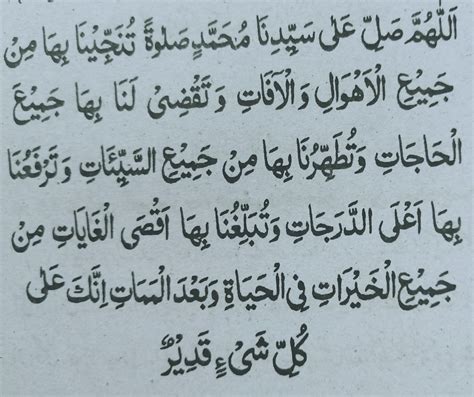 اَللّٰهُمَّ صَلِّ عَلٰى سَيِّدِنَا مُحَمَّدٍ صَلٰوةً تُنَجِّيْنَا بِهَا مِنْ
جَمِيْعِ الْاَهْوَالِ وَالْاٰفَاتِ وَتَقْضِىْ لَنَا بِهَا جَمِيْعَ
الْحَاجَاتِ وَتُطَهِّرُنَا بِهَا مِنْ جَمِيْعِ السَّيِّئَاتِ وَتَرْفَعُنَا
بِهَا اَعْلَى الدَّرَجَاتِ وَتُبَلِّغُنَا بِهَا اَقْصَى الْغَايَاتِ مِنْ
جَمِيْعِ الْخَيْرَاتِ فِى الْحَيَاةِ وَبَعْدَ الْمَمَاتِ اِنَّكَ عَلٰى
كُلِّ شَىْءٍ قَدِيْرٌ